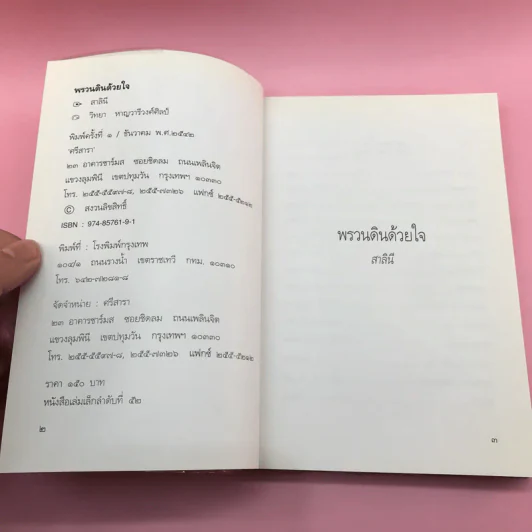 พรวนดินด้วยใจ
สาลินี
วิทยา หาญวารีวงศ์ศิลป์
พิมพ์ครั้งที่ ๑ / ธันวาคม พ.ศ.๒๕๔๒
ศรีสารา
๒๓ อาคารชาร์มส ซอยชิดลม ถนนเพลินจิต
แขวงลุมพินี เขตปทุมวัน กรุงเทพฯ ๑๐๓๓๐
โทร. ๒๕๕-๕๕๙๗-๘, ๒๕๕-๗๓๒๖ แฟกซ์ ๒๕๕-๕๒๑๒
© สงวนลิขสิทธิ์
ISBN : 974-85761-9-1
พิมพ์ที่ : โรงพิมพ์กรุงเทพ
๑๐๔/๑ ถนนรางน้ำ เขตราชเทวี กทม. ๑๐๓๑๐
โทร. ๖๔๒-๗๒๘๑-๘
จัดจำหน่าย : ศรีสารา
๒๓ อาคารชาร์มส ซอยชิดลม ถนนเพลินจิต
แขวงลุมพินี เขตปทุมวัน กรุงเทพฯ ๑๐๓๓๐
โทร. ๒๕๕-๕๕๙๗-๘, ๒๕๕-๗๓๒๖ แฟกซ์ ๒๕๕-๕๒๑๒
ราคา ๑๕๐ บาท
หนังสือเล่มเล็กลำดับที่ ๕๒
๒
พรวนดินด้วยใจ
สาลินี
๓